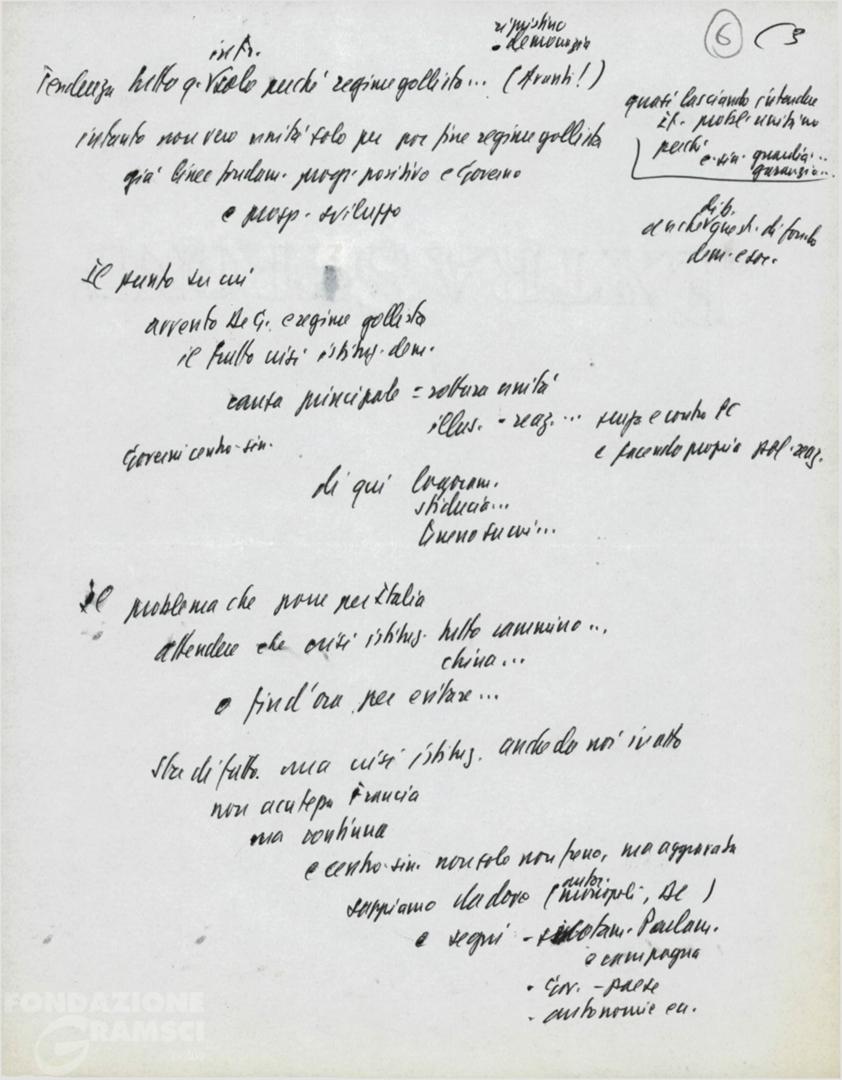 6
ripristino
• democrazia
in Fr.
Tendenza tutto q. solo perché regime gollista... (Avanti!)
quasi lasciando intendere
It. probl. unità no
perché
e sin. quando...
garanzia...
intanto non vero unità solo per por fine regime gollista
già linee fondam. progr. positivo e Governo
e prosp. sviluppo
dib.
anche quest. di fondo
dem. e soc.
Il punto su cui
avvento De G. e regime gollista
il frutto crisi istituz. dem.
causa principale = rottura unità
illus. - reaz. ... senza e contro PC
Governi centro-sin.
e facendo propria pol. reaz.
di qui logoram.
sfiducia...
terreno su cui...
Il problema che pone per Italia
attendere che crisi istituz. tutto cammino...
china...
o fin d'ora per evitare...
Sta di fatto. ma crisi istituz. anche da noi in atto
non acuta Francia
ma continua
e centro-sin. non solo non freno, ma aggravata
sappiamo da dove (monopoli, DC)
autor.
e segni - svuotam. Parlam.
e campagna
- Gov. - paese
- autonomie ecc.
FONDAZIONE
GRAMSCI